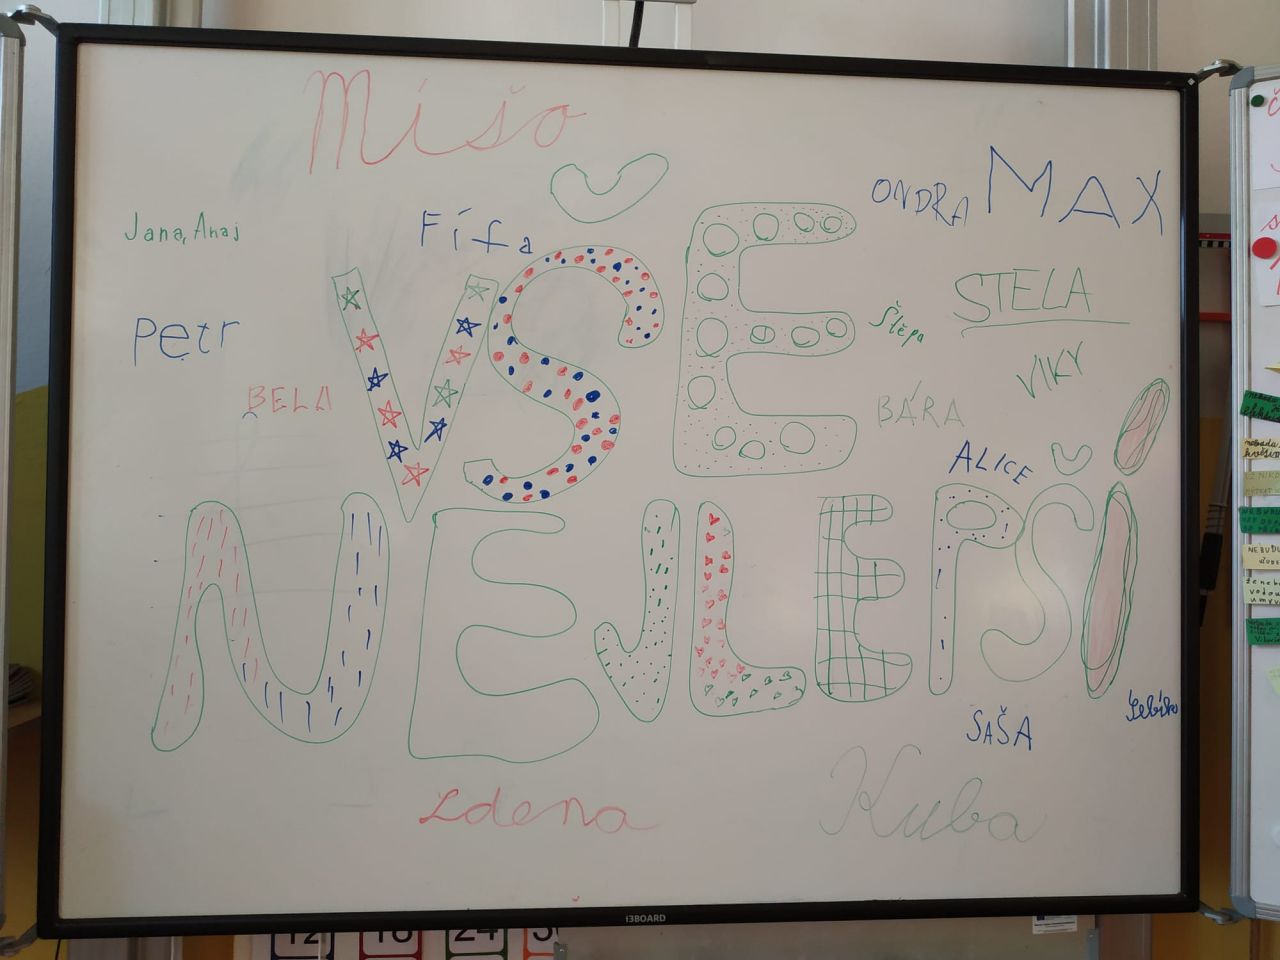 Mišo
ONDRA MAX
Jana, Anaj
Fífa
STELA
Petr
Štěpa
VIKY
BELA
BÁRA
VŠE
ALICE
NEJLEPŠÍ
SAŠA
Zdena
Kuba
i3BOARD
12
18
24